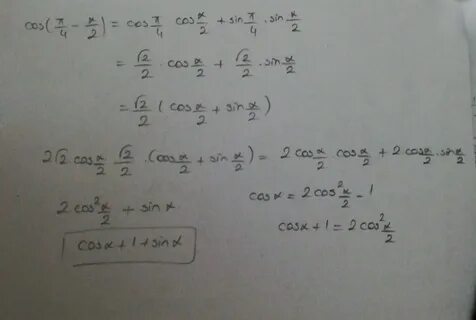 cos(π/4 - α/2) = cos π/4 cos α/2 + sin π/4 . sin α/2
= √2/2 . cos α/2 + √2/2 . sin α/2
= √2/2 (cos α/2 + sin α/2)
2√2 cos α/2 √2/2 . (cos α/2 + sin α/2) = 2 cos α/2 . cos α/2 + 2 cos α/2 . sin
2cos² α/2 + sin α
cos α = 2cos² α/2 - 1
cos α + 1 + sin α
cos α + 1 = 2cos² α/2